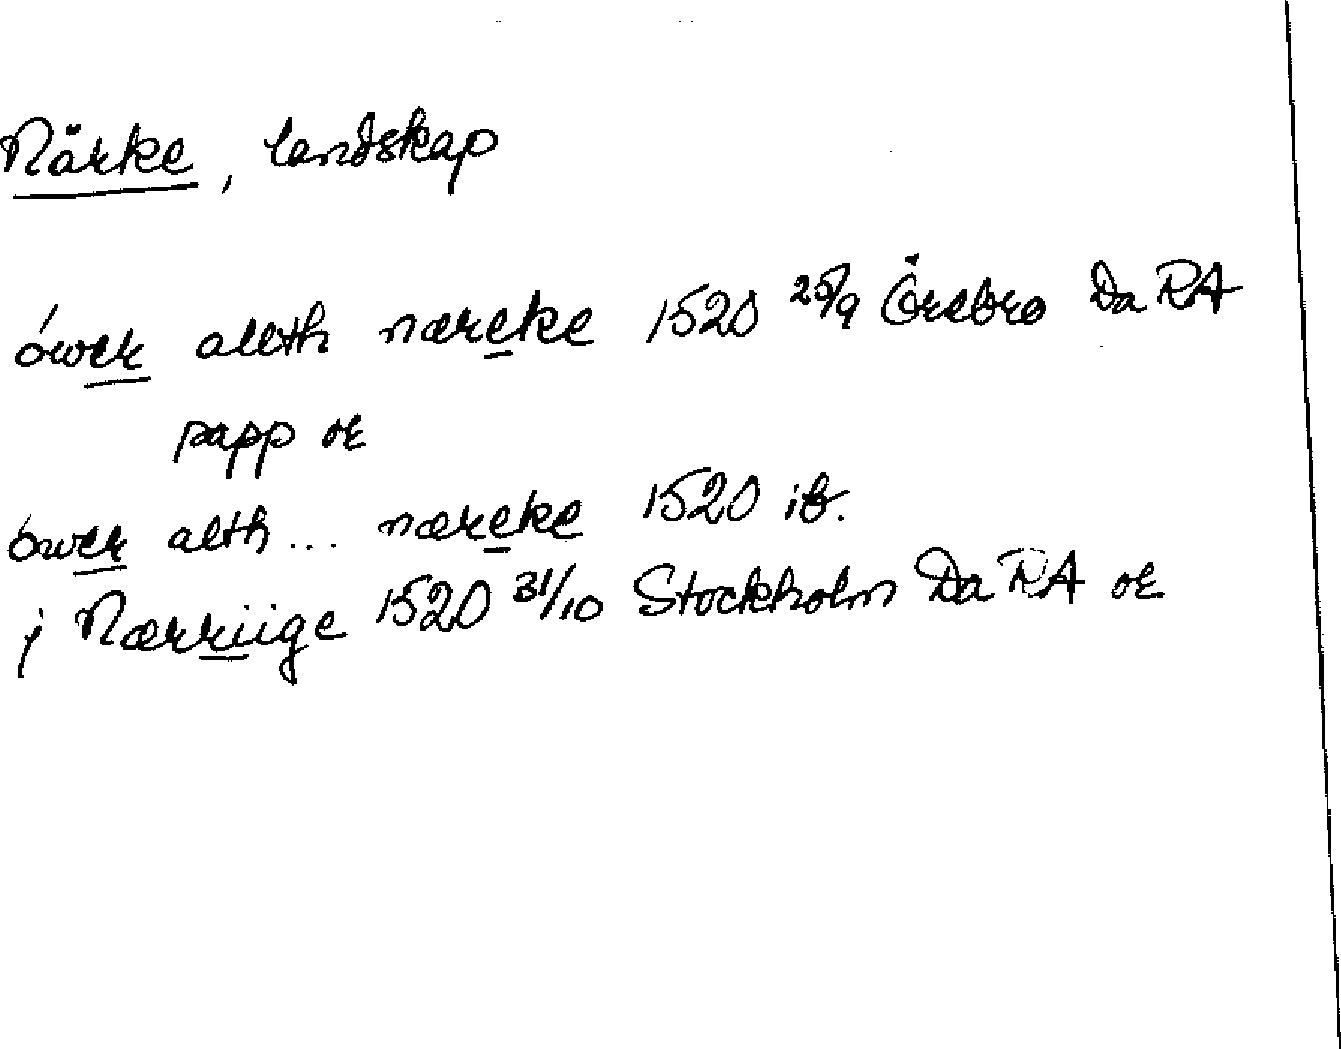 Närke, landskap
ówer allth nærcke 1520 25/9 Örebro Da RA
papp or
ówer alth... nærcke 1520 ib.
j Nærriige 1520 31/10 Stockholm Da RA or